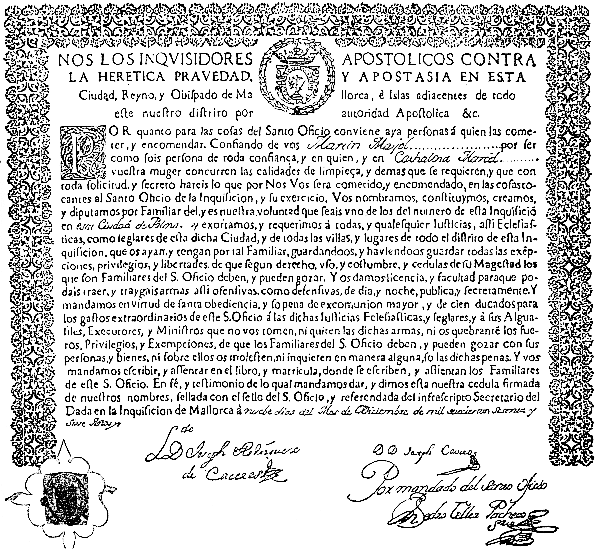 NOS LOS INQVISIDORES APOSTOLICOS CONTRA
LA HERETICA PRAVEDAD, Y APOSTASIA EN ESTA
Ciudad, Reyno, y Obispado de Mallorca, è Islas adiacentes de todo
este nuestro distrito por autoridad Apostolica &c.
POR quanto para las cosas del Santo Oficio conviene aya personas á quien las come-
ter, y encomendar. Confiando de vos Martin Mayol por ser
como sois persona de toda confiança, y en quien, y en Cathalina
vuestra muger concurren las calidades de limpieça, y demas que se requieren, y que con
toda solicitud, y secreto hareis lo que por Nos Vos será cometido, y encomendado, en las cosas to-
cantes al Santo Oficio de la Inquisicion, y su exercicio. Vos nombramos, constituymos, creamos,
y diputamos por Familiar del, y es nuestra voluntad que seais vno de los del numero de esta Inquisició
en esta Ciudad de y exortamos, y requerimos á todas, y qualesquier Iusticias, assi Eclesias-
ticas, como seglares de esta dicha Ciudad, y de todas las villas, y lugares de todo el distrito de esta In-
quisicion, que os ayan, y tengan por tal Familiar, guardandoos, y haviendoos guardar todas las exēp-
ciones, privilegios, y libertades, de que segun derecho, vso, y costumbre, y cedulas de su Magestad los
que son Familiares del S. Oficio deben, y pueden gozar. Y os damos licencia, y facultad para que po-
dais traer, y traygais armas assi ofensivas, como defensivas, de dia, y noche, publica, y secretamente. Y
mandamos en virtud de santa obediencia, y so pena de excomunion mayor, y de cien ducados para
los gastos extraordinarios de este S. Oficio á las dichas Iusticias Eclesiasticas, y seglares, y á sus Algua-
ziles, Executores, y Ministros que no vos tomen, ni quiten las dichas armas, ni os quebranté los fue-
ros, Privilegios, y Exempciones, de que los Familiares del S. Oficio deben, y pueden gozar con sus
personas, y bienes, ni sobre ellos os molesten, ni inquieten en manera alguna, so las dichas penas. Y vos
mandamos escribir, y assentar en el libro, y matricula, donde se escriben, y assientan los Familiares
de este S. Oficio. En fé, y testimonio de lo qual mandamos dar, y dimos esta nuestra cedula firmada
de nuestros nombres, sellada con el sello del S. Oficio, y referendada del infrascripto Secretario del
Dada en la Inquisicion de Mallorca á nuebe dias del Mes de Diziembre de mil seicientos y
siete años
L.do D. Joseph
de Caceres
D. D. Joseph
Por mandado del Santo Oficio
Pedro Tellez Pacheco
Srio